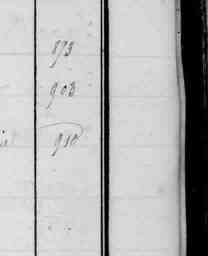 873
903
910